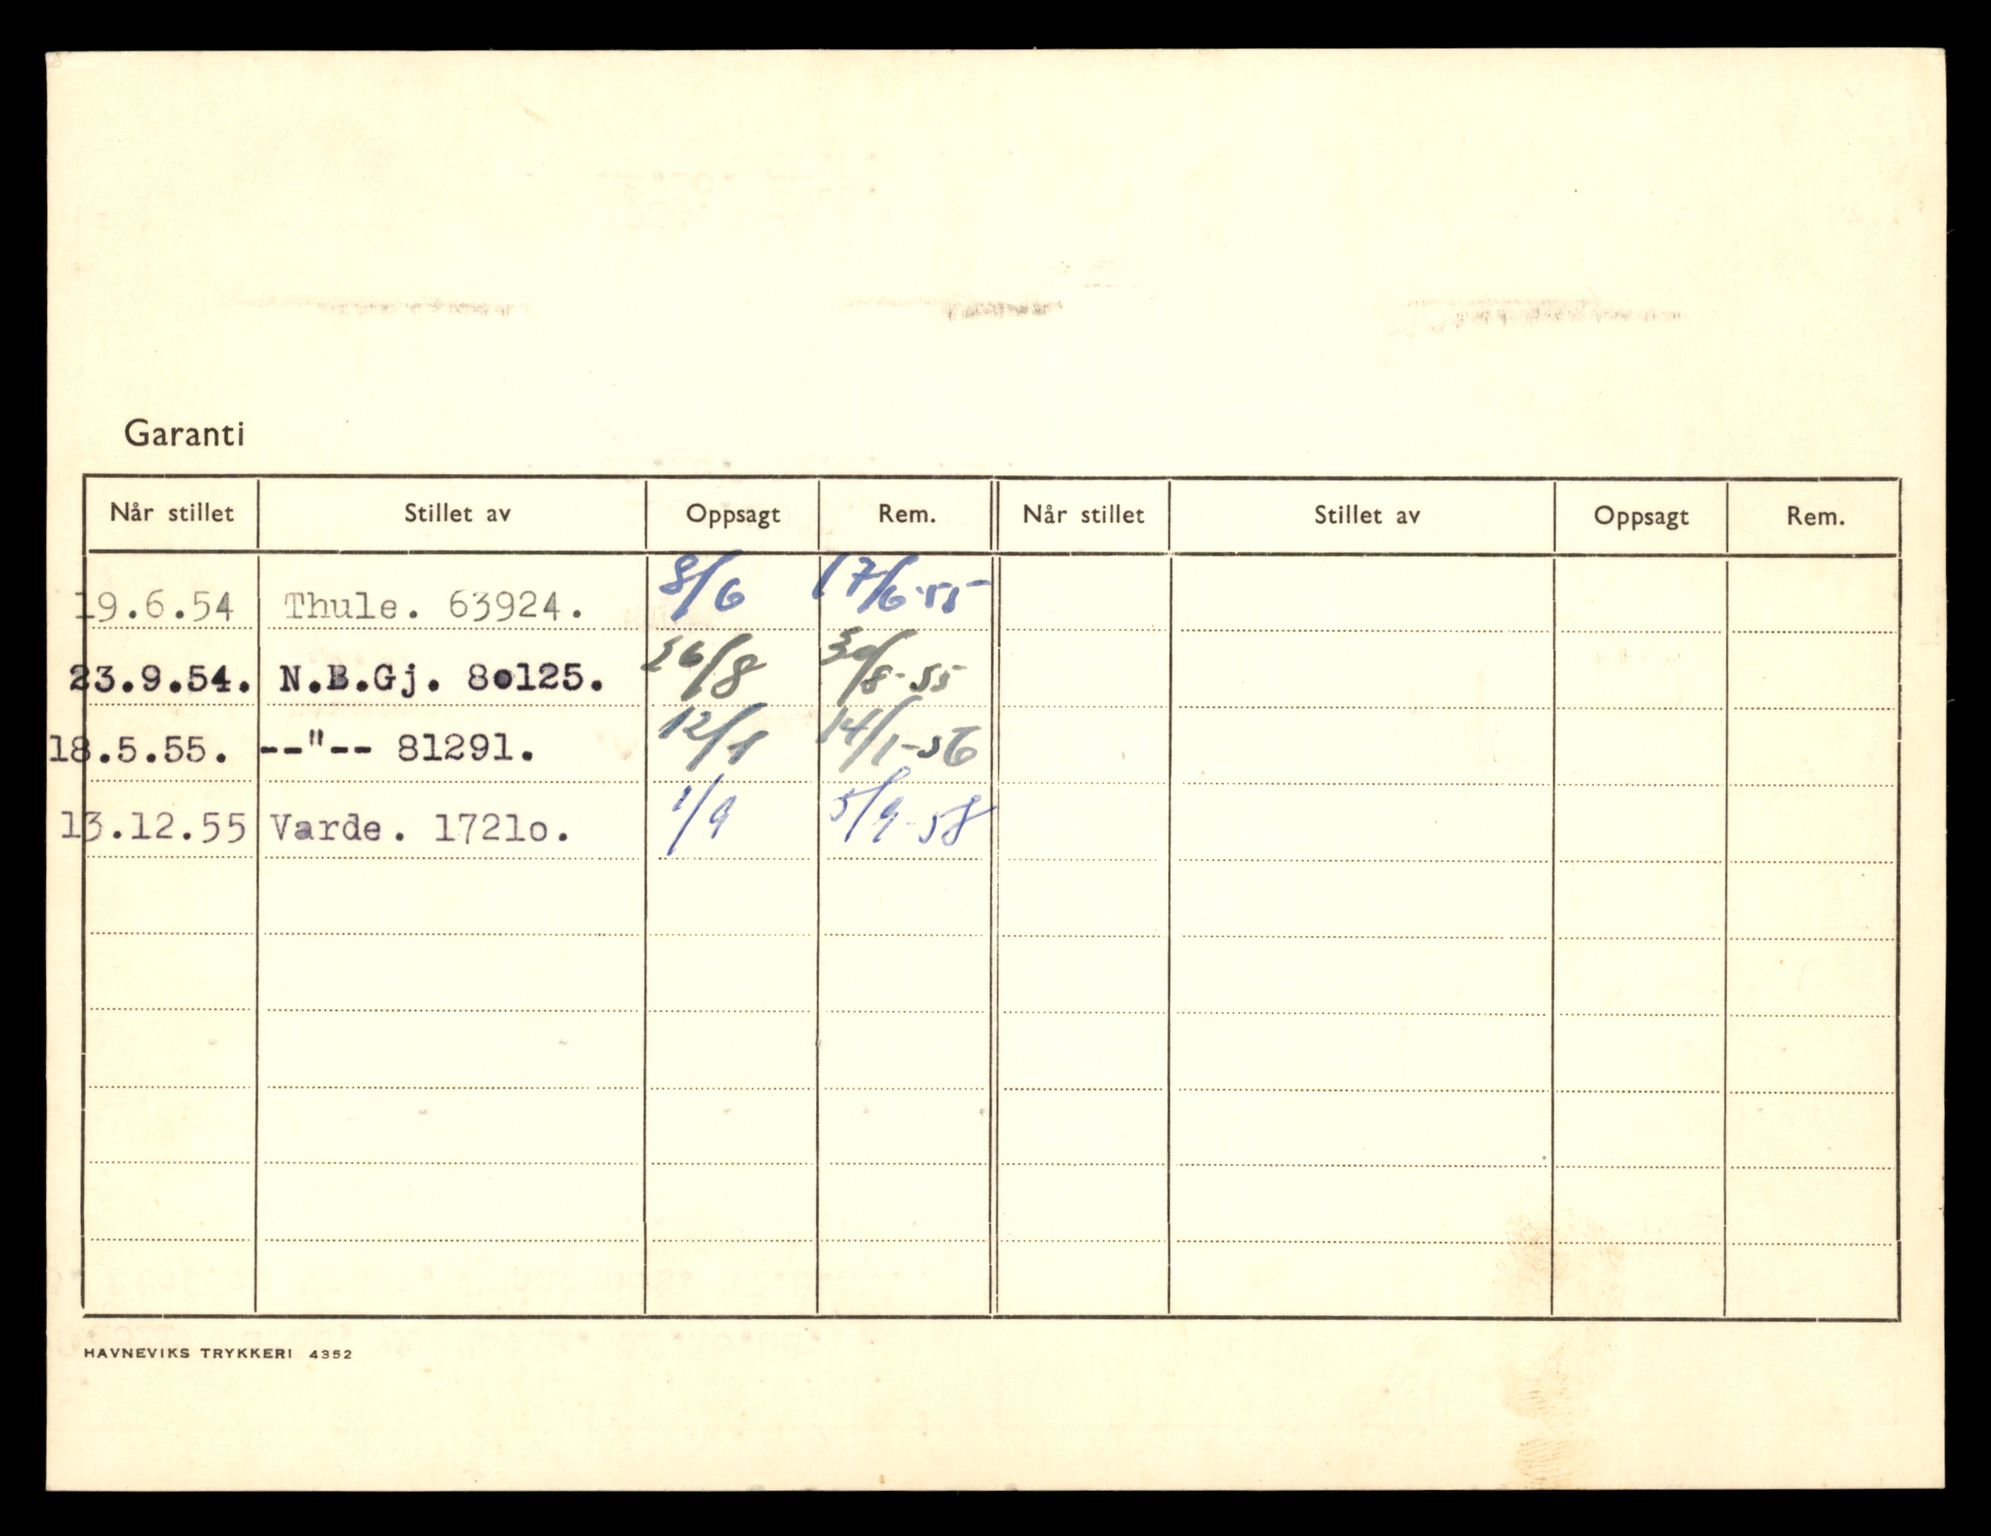 Garanti
Når stillet Stillet av Oppsagt Rem. Når stillet Stillet av Oppsagt Rem.
19.6.54 Thule. 63924. 8/6 17/6-55
23.9.54. N.B.Gj. 8o125. 26/8 30/8-55
18.5.55. --"-- 81291. 12/1 14/1-56
13.12.55 Varde. 1721o. 1/9 5/9-58
HAVNEVIKS TRYKKERI 4352